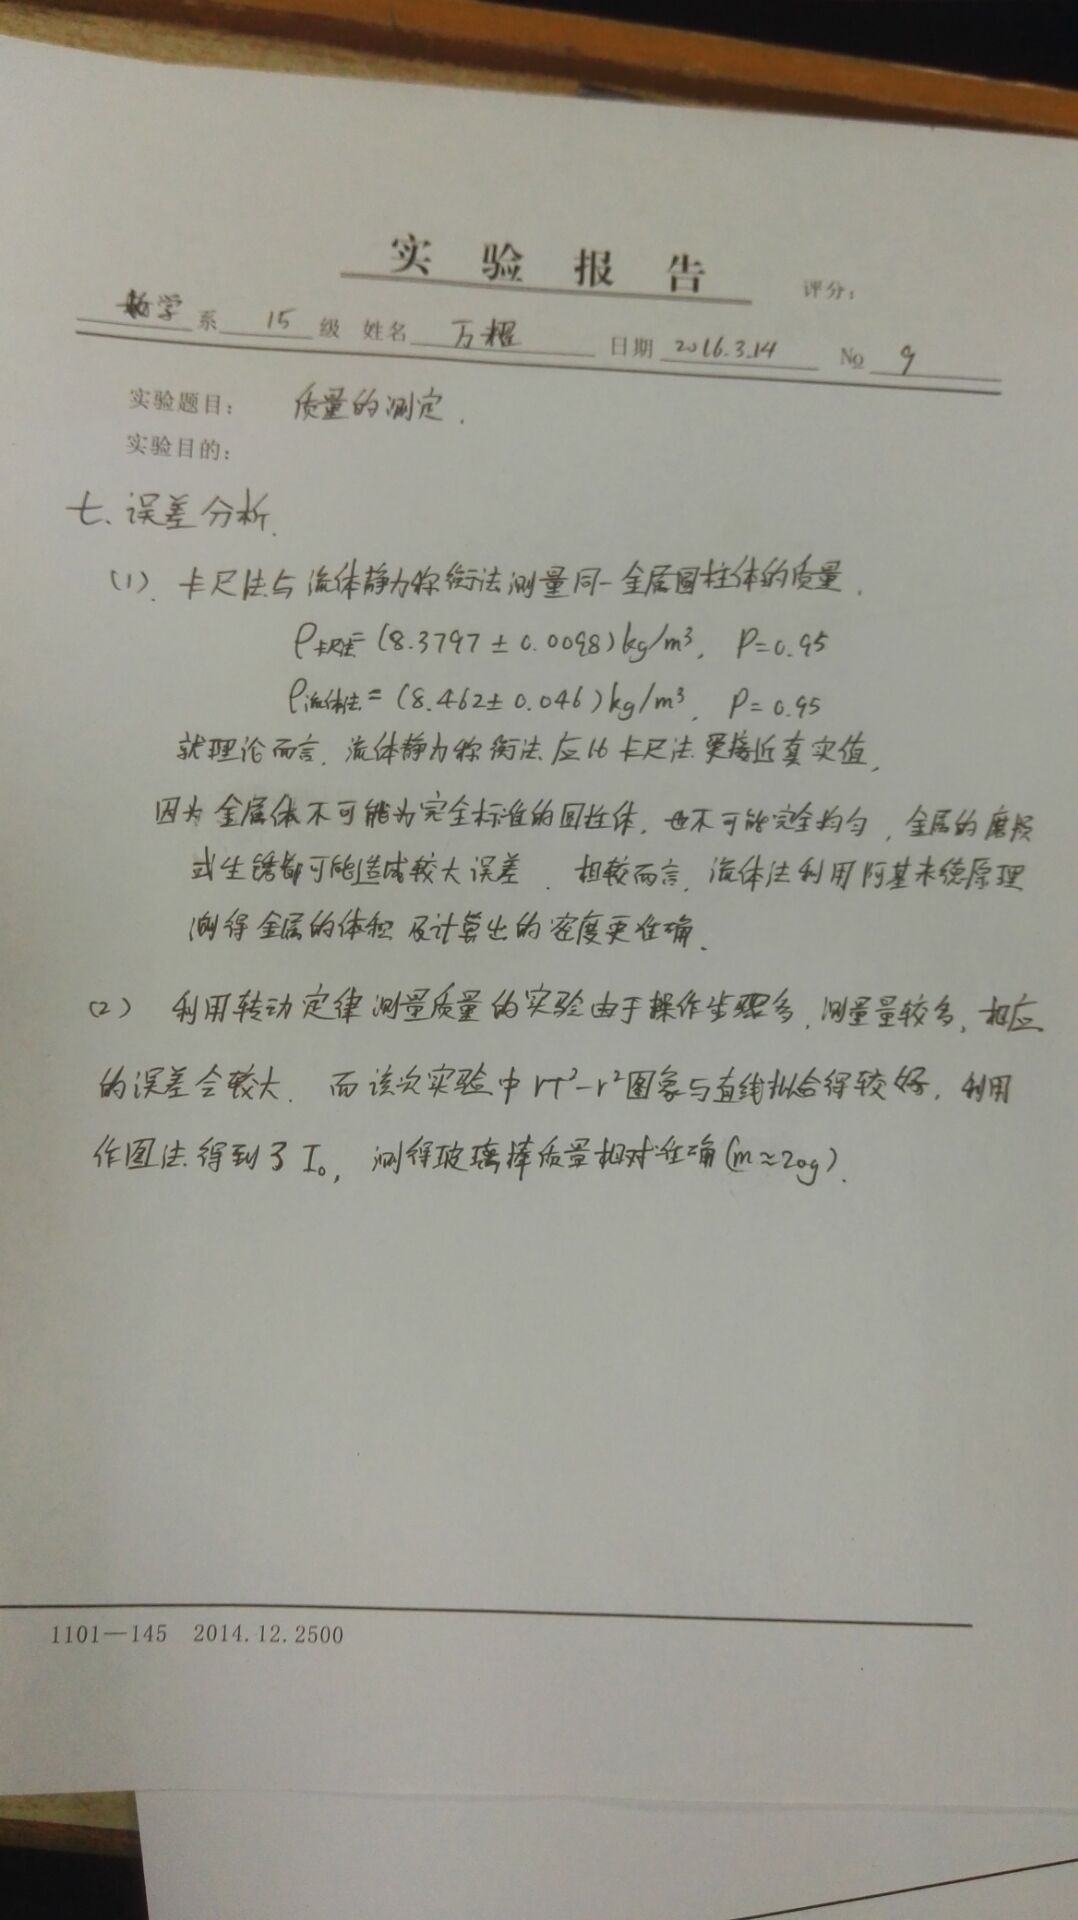 实验报告
评分:
系 15 级 姓名 万耀 日期 2016.3.14 № 9
实验题目: 质量的测定.
实验目的:
七、误差分析.
(1). 卡尺法与流体静力称衡法测量同一金属圆柱体的质量.
ρ卡尺法=(8.3797±0.0098)kg/m³, P=0.95
ρ流体法=(8.462±0.046)kg/m³, P=0.95
就理论而言,流体静力称衡法应比卡尺法更接近真实值,
因为金属体不可能为完全标准的圆柱体,也不可能完全均匀,金属的磨损
或生锈都可能造成较大误差.相较而言,流体法利用阿基米德原理
测得金属的体积及计算出的密度更准确.
(2) 利用转动定律测量质量的实验由于操作步骤多,测量量较多,相应
的误差会较大.而该次实验中rT²-r²图象与直线拟合得较好,利用
作图法得到了I₀,测得玻璃棒质量相对准确(m≈20g).
1101—145 2014.12.2500